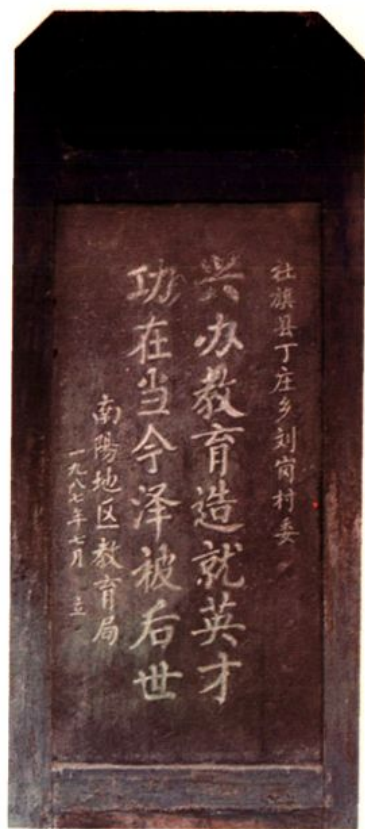 社旗县丁庄乡刘岗村委
兴办教育造就英才
功在当今泽被后世
南陽地区教育局
一九八七年七月 立